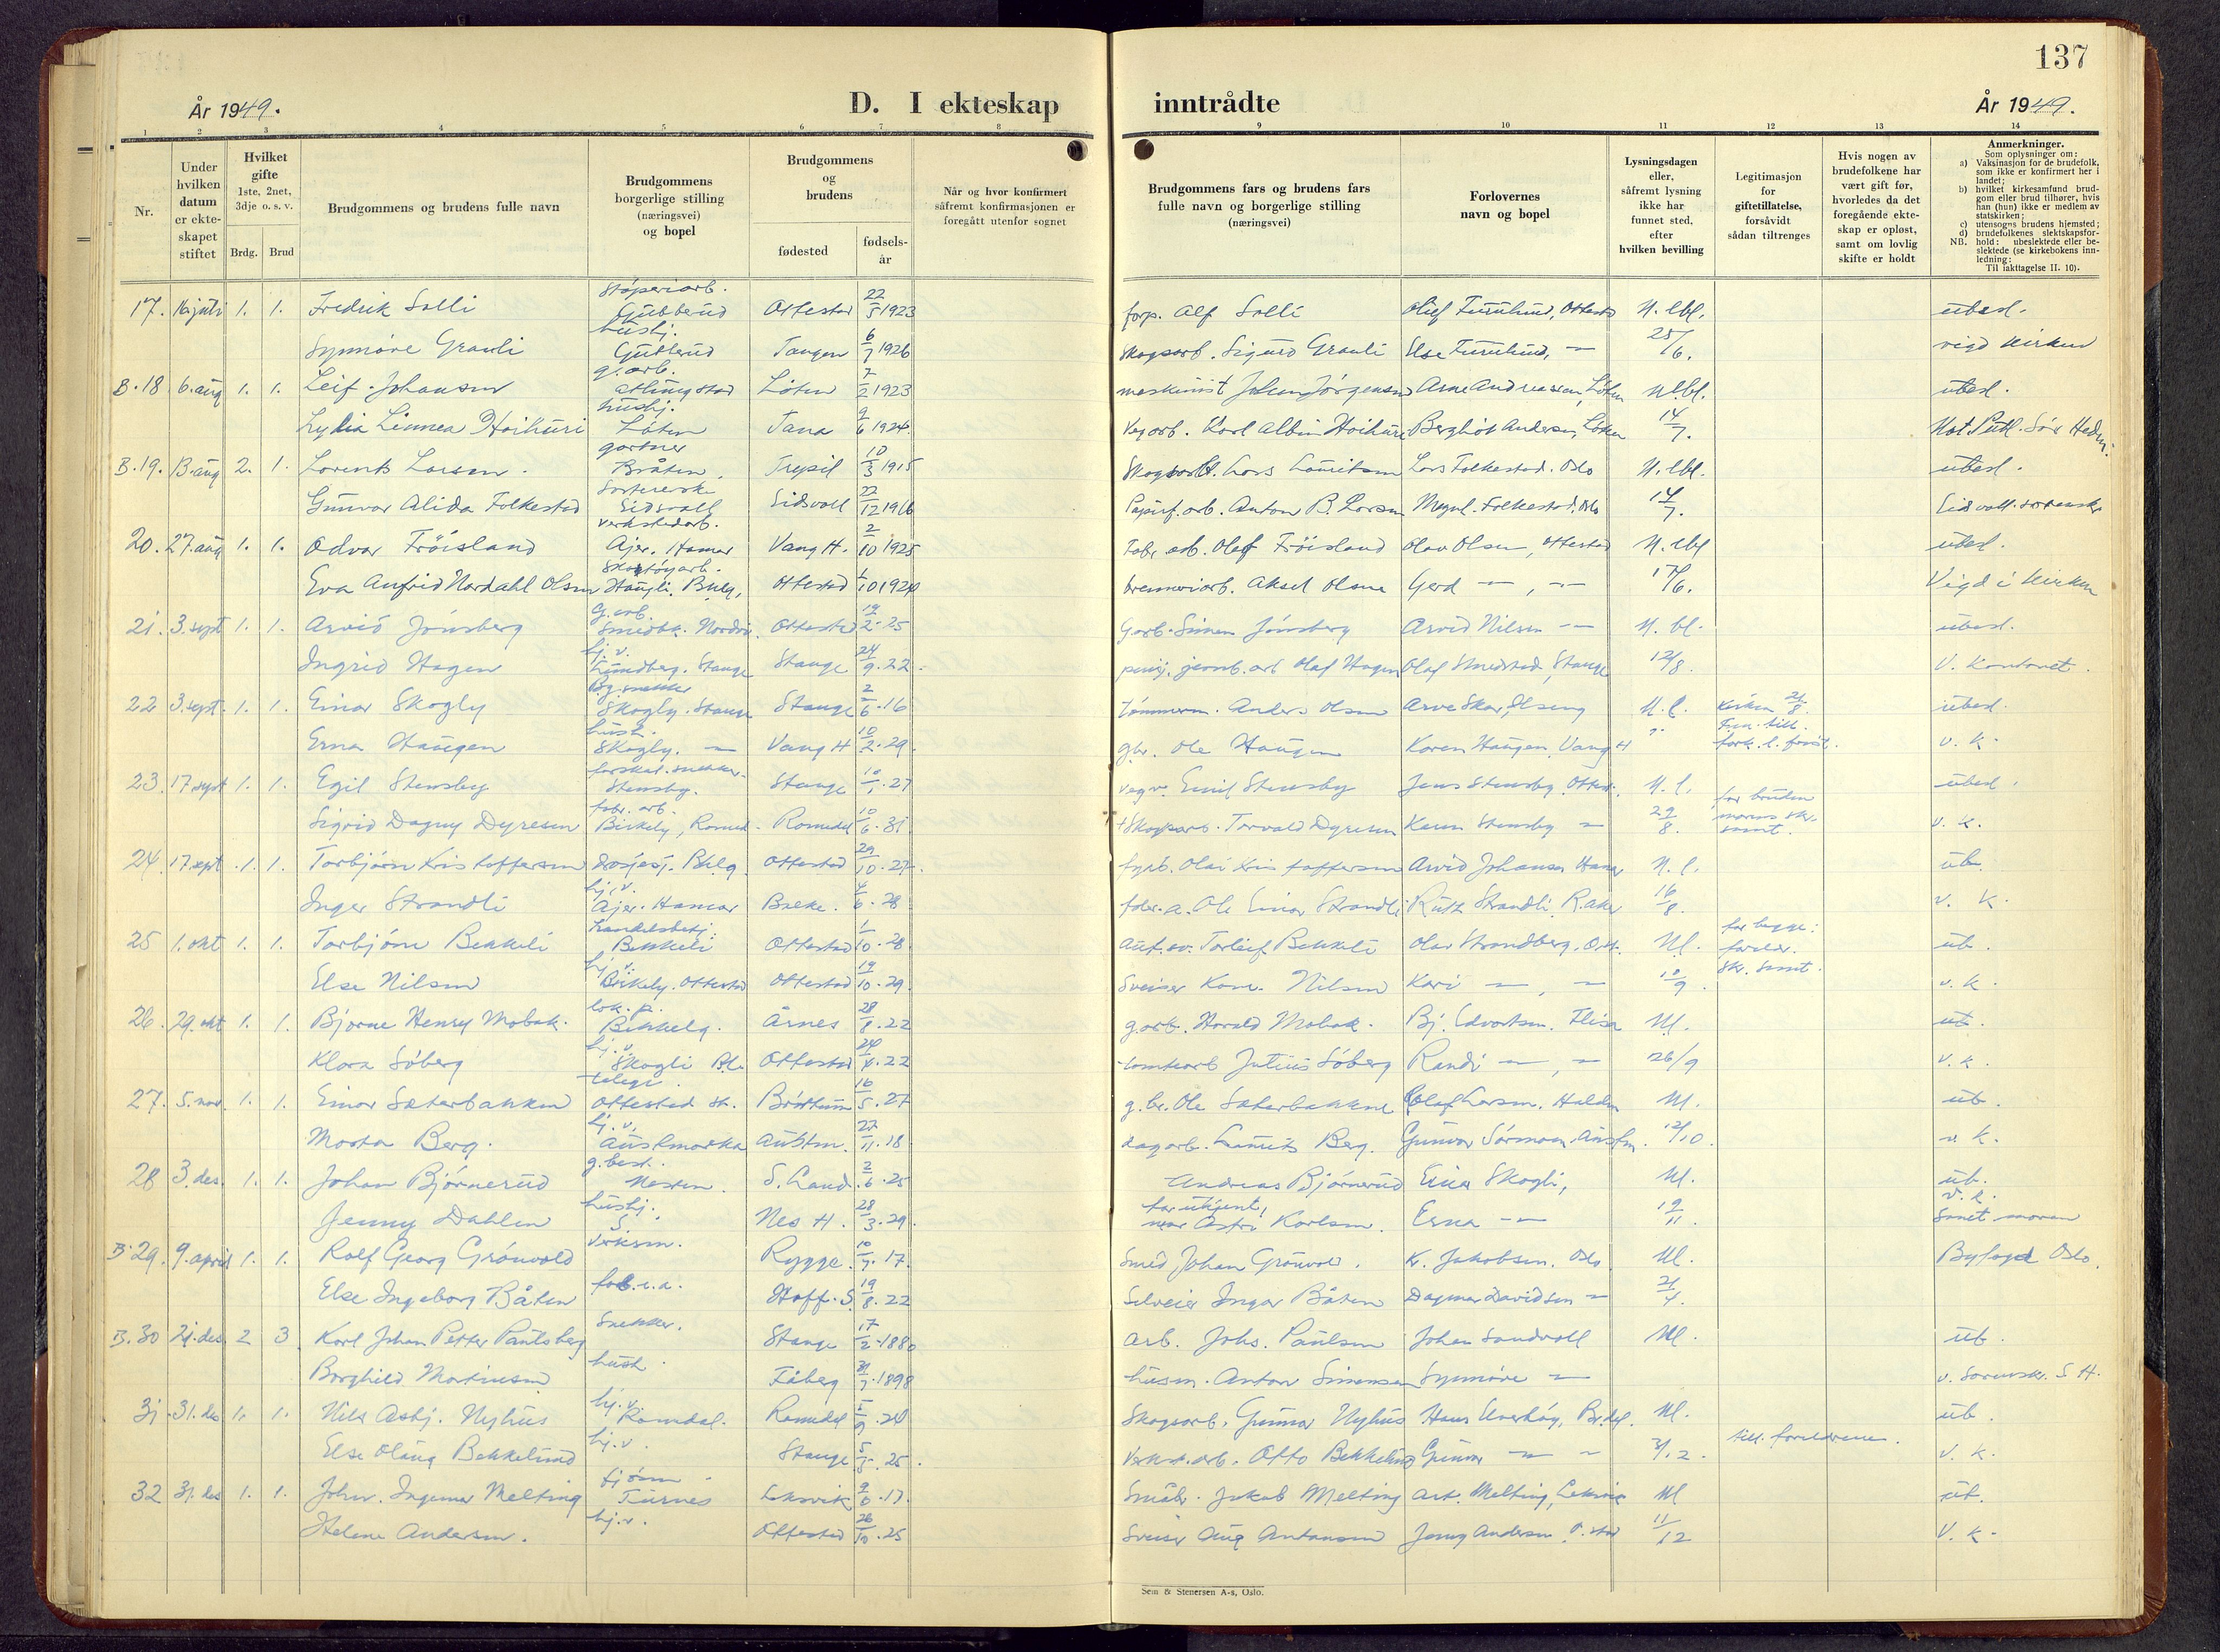 137
År 1949.
D. I ekteskap inntrådte
År 1949.
1 2 3 4 5 6 7 8 9 10 11 12 13 14
Nr.
Under hvilken datum er ekteskapet stiftet
Hvilket gifte
1ste, 2net, 3dje o. s. v.
Brdg. Brud
Brudgommens og brudens fulle navn
Brudgommens borgerlige stilling
(næringsvei)
og bopel
Brudgommens og brudens
fødested
fødsels-
år
Når og hvor konfirmert
såfremt konfirmasjonen er
foregått utenfor sognet
Brudgommens fars og brudens fars
fulle navn og borgerlige stilling
(næringsvei)
Forlovernes
navn og bopel
Lysningsdagen
eller,
såfremt lysning
ikke har
funnet sted,
efter
hvilken bevilling
Legitimasjon
for
giftetillatelse,
forsåvidt
sådan tiltrenges
Hvis nogen av
brudefolkene har
vært gift før,
hvorledes da det
foregående ekte-
skap er opløst,
samt om lovlig
skifte er holdt
Anmerkninger.
Som oplysninger om:
a) Vaksinasjon for de brudefolk,
som ikke er konfirmert her i
landet;
b) hvilket kirkesamfund brud-
gom eller brud tilhører, hvis
han (hun) ikke er medlem av
statskirken;
c) utensogns brudens hjemsted;
d) brudefolkenes slektskapsfor-
NB. hold: ubeslektede eller be-
slektede (se kirkebokens inn-
ledning:
Til iakttagelse II. 10).
17. 16 juli 1. 1. Fredrik Solli Støperiarb. Gubberud Ottestad 22/5 1923 forp. Alf Solli Oluf Furulund, Ottestad N. lbl. ubesl.
Synnøve Grauli hushj. Gubberud Tangen 6/7 1926 Skogsarb. Sigurd Grauli Else Furulund, — 25/6. vigd kirken
B. 18 6. aug 1. 1. Leif Johansen g.arb. Atlungstad Løten 7/2 1923 maskinist Johan Jørgensen Arne Andreassen, Løten N.lbl. ubesl.
Lydia Linnea Hoikuri hushj. Løten Tana 9/6 1924. Vegarb. Karl Albin Hoikuri Bergliot Andersen, Løten 14/7. Not. Publ. Sør Hedm.
B. 19. 13. aug 2. 1. Lorents Larsen. gartner Bråten Trysil 10/3 1915 Skogsarb. Lars Lauritsen Lars Folkestad. Oslo N. lbl. ubesl.
Gunvor Alida Folkestad Eidsvoll Eidsvoll 22/12 1916 Papirf. arb. Anton B. Larsen Magnh. Folkestad, Oslo 14/7. Eidsvoll sorensk.
20. 27. aug 1. 1. Odvar Frøisland verkstedarb. Ajer. Hamar Vang H. 2/10 1925 Fabr. arb. Olaf Frøisland Olav Olsen, Ottestad N. lbl ubesl.
Eva Anfrid Nordahl Olsen Skotøyarb. Haugli. Bklg. Ottestad 1/10 1924 brenneriarb. Aksel Olsen Gerd — , — 17/6. Vigd i kirken
21. 3. sept 1. 1. Arvid Jønsberg G. arb. Smedbk. Nordvi. Ottestad 19/2. 25 G. arb. Simen Jønsberg Arvid Nilsen — N. bl. ubesl.
Ingrid Hagen hj. v. Lundberg. Stange Stange 24/9. 22. pensj. jernb. arb Olaf Hagen Olaf Smedstad, Stange 12/8. V. kontoret.
22 3. sept. 1. 1. Einar Skogly Byg. snekker Skogly. Stange Stange 2/6. 16 tømmerm. Anders Olsen Arve Skar, N. l. kirken 21/8. ubesl.
Erna Haugen hush. Skogly. — Vang H 10/2. 29. gbr. Ole Haugen Karen Haugen, Vang H v. k.
23. 17 sept 1. 1. Egil Stensby forskal. snekker. Stensby. Stange 10/1. 27 vegv. Emil Stensby Jens Stensby, Ottest. N. l. for bruden ubesl.
Sigrid Dagny Dyresen fabr. arb. Birkely, Romed. Romedal 10/6. 31 + Skogsarb. Torvald Dyresen Karen Stensby — 29/8. morens skr. samt. v. k.
24. 17. sept. 1. 1. Torbjørn Kristoffersen drosjesj. Bklg. Ottestad 29/10. 27. fyrb. Olai Kristoffersen Arvid Johansen Hamar N. l. ub.
Inger Strandli hj. v. Ajer. Hamar Brekke. 4/6. 28 fabr. a. Ole Einar Strandli Ruth Strandli, 16/8. v. k.
25 1. okt 1. 1. Torbjørn Bekkeli handelsbetj. Bekkeli Ottestad 1/10. 28 Torleif Bekkeli Olav Strandberg, Ott. Nl. for begge: foreldr. ub.
Else Nilsen hj. v. Birkely. Ottestad Ottestad 19/10. 29. Sveiser Kare Nilsen Kari — , — 10/9 skr. samt. v. k.
26. 29. okt 1. 1. Bjarne Henry Mobak. lok. p. Bekkelg. Årnes 28/8. 22 g. arb. Harald Mobak. Bj. Edvartsen. Elisa Nl. ub.
Klara Søberg hj. v. Skogli Bkl. Ottestad 24/4. 22 tomtearb Julius Søberg Randi — , — 26/9 v. k.
27. 5. nov. 1. 1. Einar Sæterbakken telegr. Ottestad st. Brøttum 16/5. 27 g. br. Ole Sæterbakken Olaf Larsen. Halden Nl. ub.
Marta Berg. hj. v. Austmarka Austm. 27/11. 18 dagarb. Laurits Berg. Gunvor Sørmoen Austm. 12/10. v. k.
28 3. des. 1. 1. Johan Bjørnerud g. best. Nesten S. Land. 2/6. 25 Andreas Bjørnerud Einar Skogli, Nl. ub. v. k.
Jenny Dahlen hushj. Nes H. 28/3. 29. far ukjent, mor Astri Karlsen. Erna — 19/11. Smt moren
B. 29. 9. april 1. 1. Rolf Georg Grønvold verksm. Rygge. 10/7. 17. Smed Johan Grønvold. Kr. Jakobsen. Oslo Nl. Byfogd Oslo.
Else Ingeborg Båten fab. a. Hoff. S. 19/8. 22 Selveier Ingar Båten Dagmar Davidsen — 21/4.
B. 30 21. des. 2 3 Karl Johan Petter Paulsberg Snekker. Stange 17/2. 1880 arb. Johs. Paulsen Johan Sandvoll Nl. ub.
Borghild Martinsen hush. Fåberg 31/7. 1898 husm. Anton Simensen Synnøve — v. Sorenskr. S. H.
31. 31. des 1. 1. Nils Asbj. Nyhus hj. v. Romedal. Romedal 24 Skogsarb. Gunnar Nyhus Hans Nl. ub.
Else Olaug Bekkelund hj. v. Stange 5/5. 25. Verkst. arb. Otto Bekkelund Gunvor — — 3/12. till. foreldrene. v. k.
32 31. des 1. 1. John. Ingemar Melting fjøsm Furnes Leksvik 9/6. 17. Småbr. Jakob Melting Art. Melting, Leksvik Nl ub.
Helene Andersen. hj. v. Ottestad 26/10. 25 Sveiser Aug Antonsen Jenny Andersen, O. stad 11/12 V. k.
Sem & Stenersen A-s, Oslo.